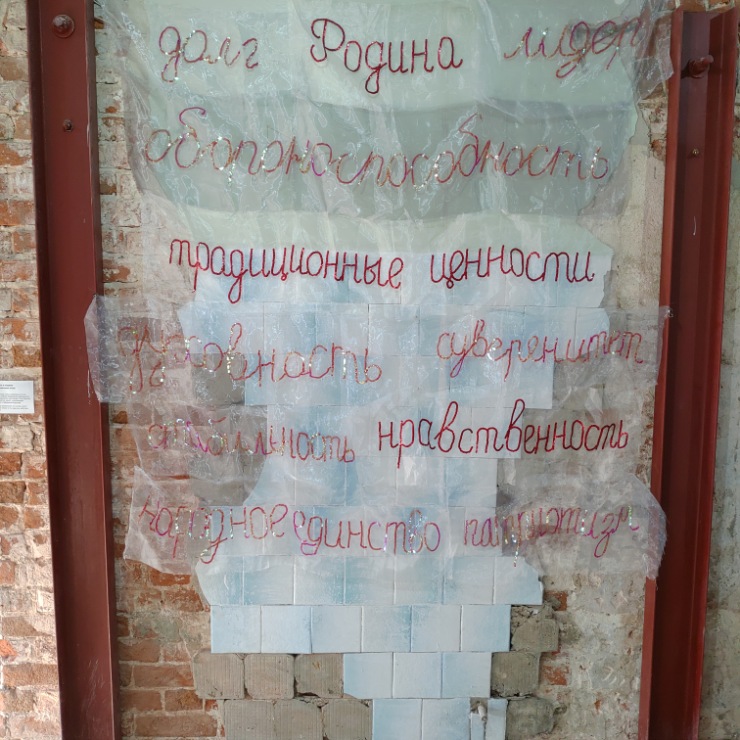 долг Родина лидер
обороноспособность
традиционные ценности
духовность суверенитет
стабильность нравственность
народное единство патриотизм